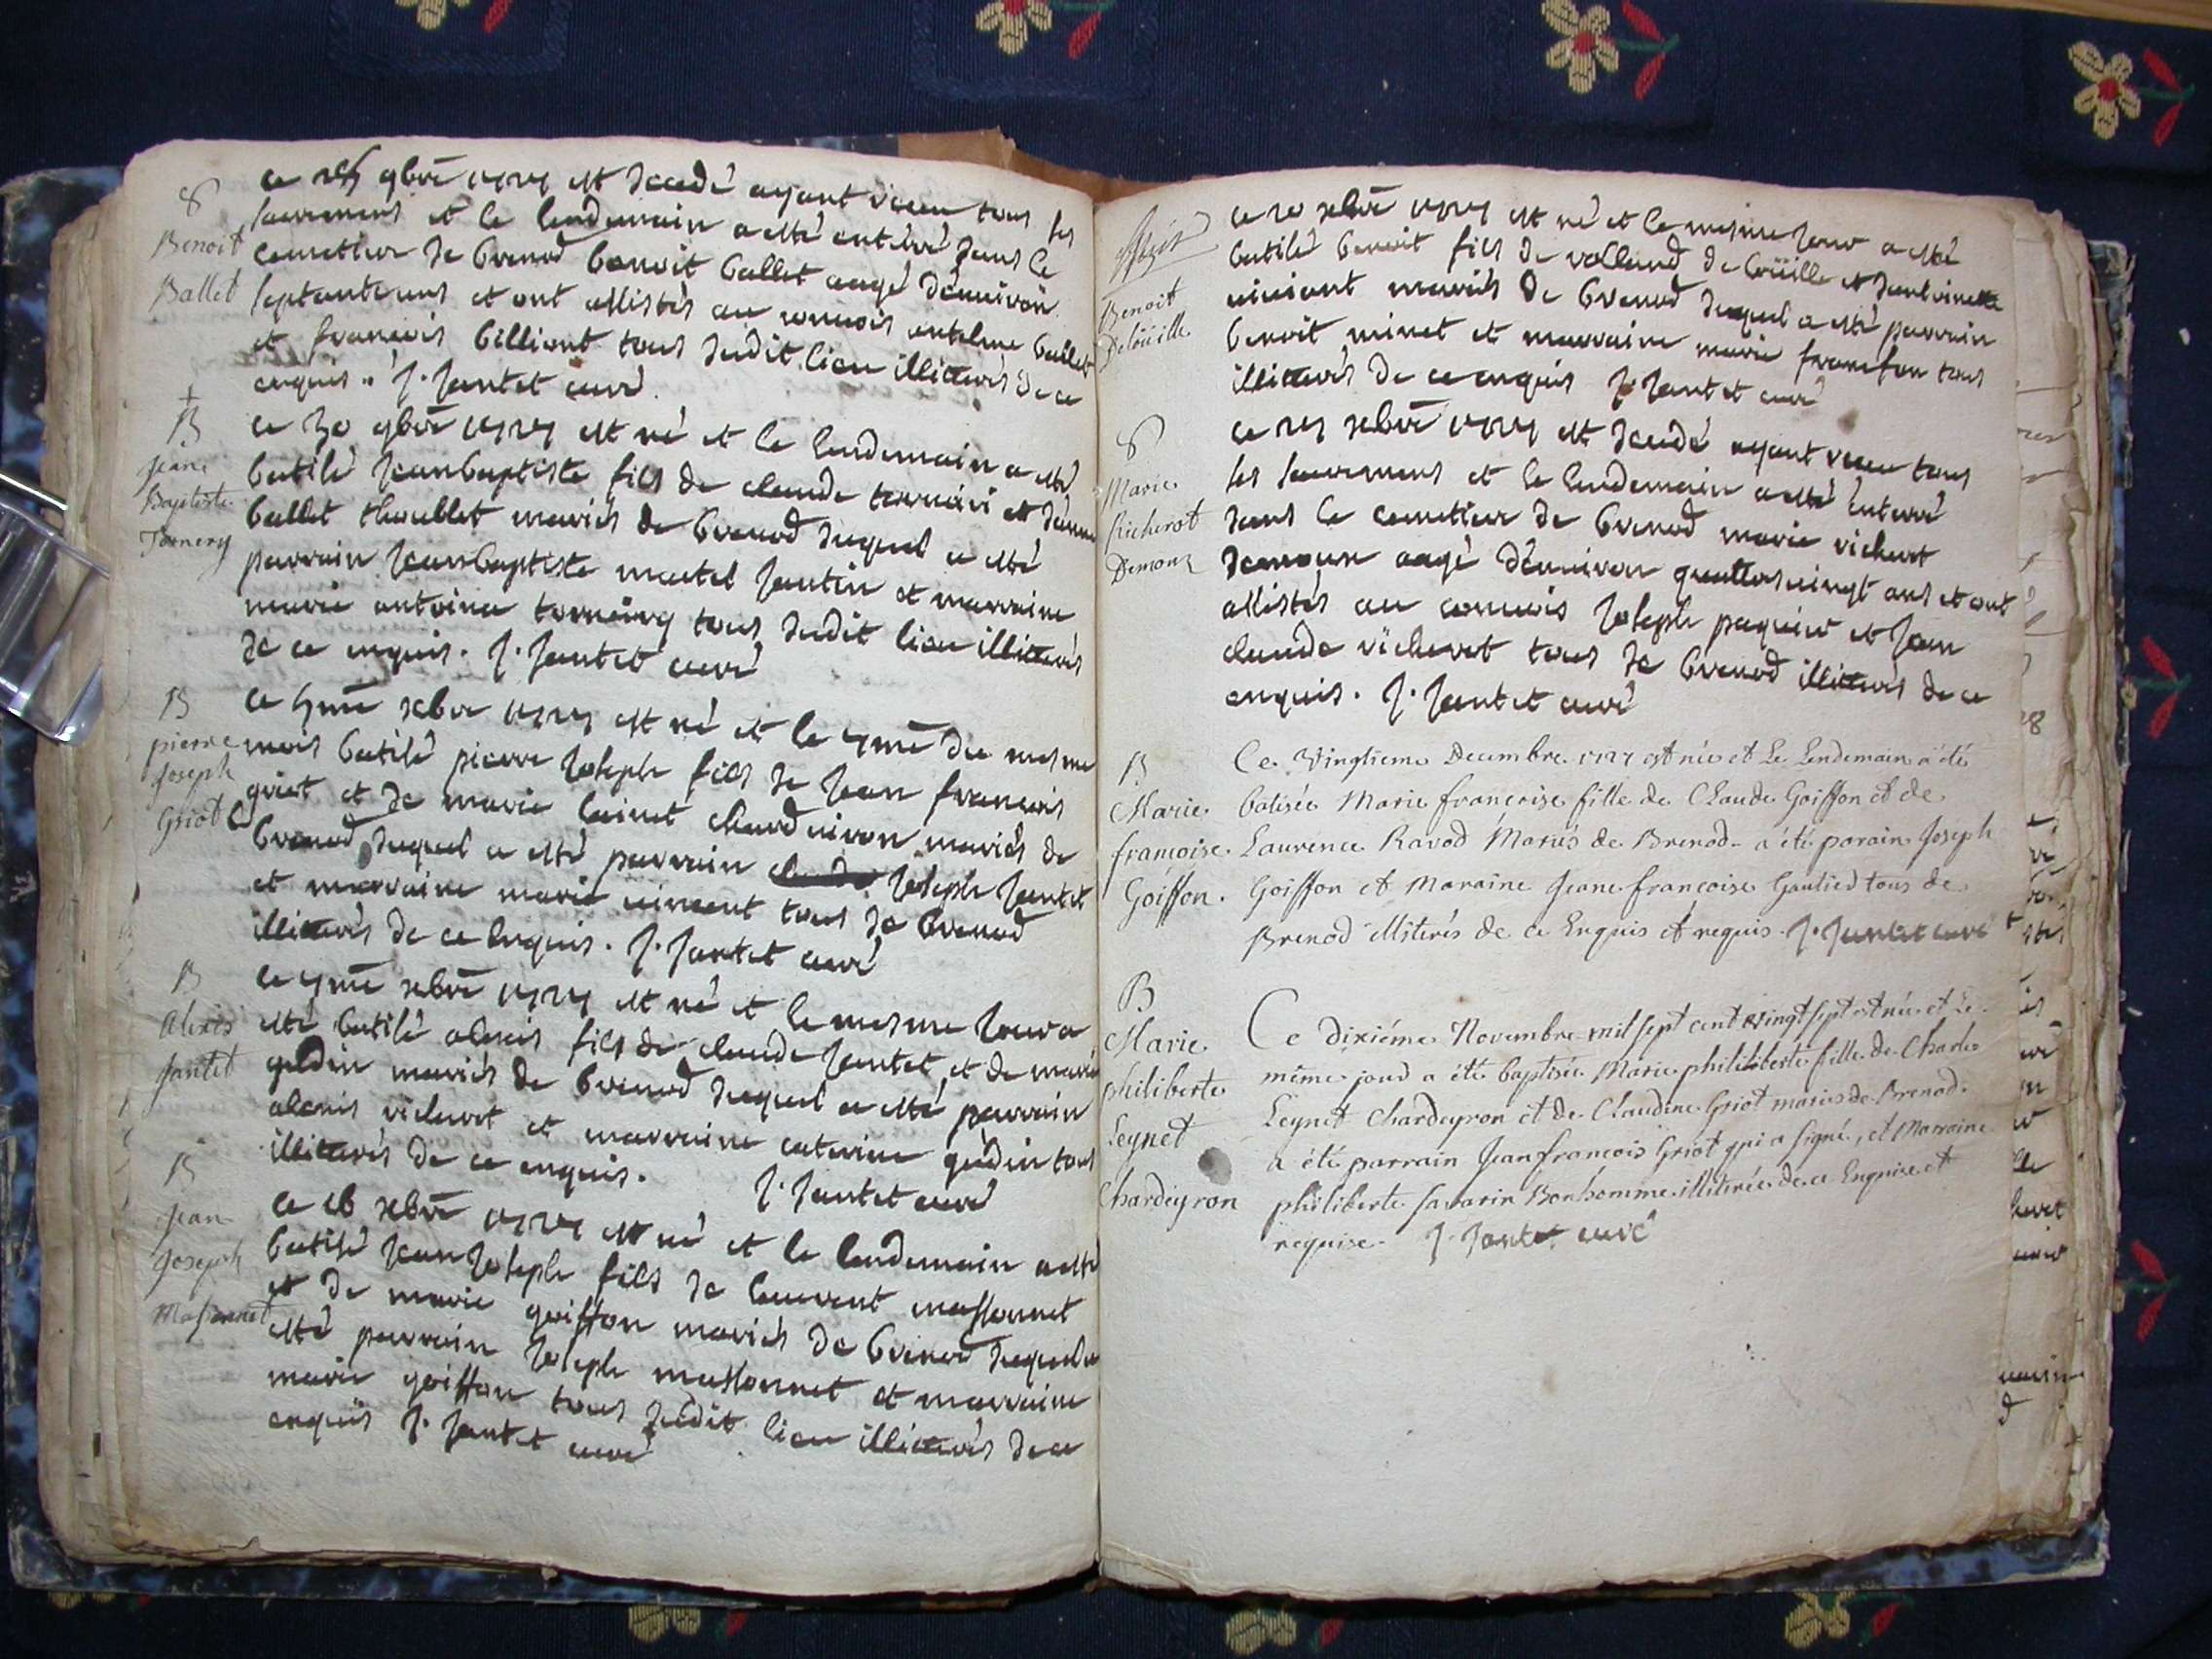 S
Benoit
Ballet
ce 25 9bre 1727 est decedé ayant receu tous ses
sacremens et le lendemain a esté enterré dans le
cemettiere de brenod benoit ballet aagé d'environ
septante ans et ont assistés au convois antelme ballet
et francois billiont tous dudit lieu illiterés de ce
enquis. J. Jantet curé
B
Jean
Baptiste
Tornery
ce 30 9bre 1727 est né et le lendemain a esté
batisé Jeanbaptiste fils de claude et d'anne
ballet thoullet mariés de brenod duquel a esté
parrain Jeanbaptiste martel Jantin et marraine
marie antoina tous dudit lieu illiterés
de ce enquis. J. Jantet curé
B
pierre
Joseph
Griot
ce 5me xbre 1727 est né et le 7me du mesme
mois batisé pierre Joseph fils de Jean francois
griot et de marie mariés de
brenod duquel a esté parrain Joseph Jantet
et marraine marie vincent tous de brenod
illiterés de ce enquis. J. Jantet curé
B
Alexis
Jantet
ce 7me xbre 1727 est né et le mesme Jour a
esté batisé alexis fils de claude Jantet et de marie
mariés de brenod duquel a esté parrain
alexis richerot et marraine caterine tous
illiterés de ce enquis. J. Jantet curé
B
Jean
Joseph
Massonnet
ce 16 xbre 1727 est né et le lendemain a esté
batisé Jean Joseph fils de laurent massonnet
et de marie goiffon mariés de brenod duquel a
esté parrain Joseph massonnet et marraine
marie goiffon tous dudit lieu illiterés de ce
enquis J. Jantet curé
Benoit
Deloüille
ce 20 xbre 1727 est né et le mesme Jour a esté
batisé benoit fils de rolland de loüille et d'antoinette
mariés de brenod duquel a esté parrain
benoit minet et marraine marie francfon tous
illiterés de ce enquis J. Jantet curé
S
Marie
Richerot
Demoux
ce 27 xbre 1727 est decedé ayant receu tous
ses sacremens et le lendemain a esté enterré
dans le cemettiere de brenod marie richerot
demoux aagé d'environ quattrevingt ans et ont
assistés au convois Joseph paquier et Jean
claude richerot tous de brenod illiterés de ce
enquis. J. Jantet curé
B
Marie
françoise
Goiffon.
Ce Vingtieme Decembre 1727 est née et Le Lendemain a été
batisée Marie françoise fille de Claude Goiffon et de
Laurence Ravod Mariés de Brenod a été parain Joseph
Goiffon et Maraine Jeane françoise Gautied tous de
Brenod illiterés de ce Enquis et requis. J. Jantet curé
B
Marie
philiberte
Leynet
Chardeyron
Ce dixiéme Novembre mil sept cent vingt sept est née et Le
même jour a été baptisée Marie philiberte fille de Charles
Leynet Chardeyron et de Claudine Griot mariés de Brenod.
a été parrain Jean francois Griot qui a signé, et Marraine
philiberte Savarin Bonhomme illiterée de ce Enquise et
requise. J. Jantet curé